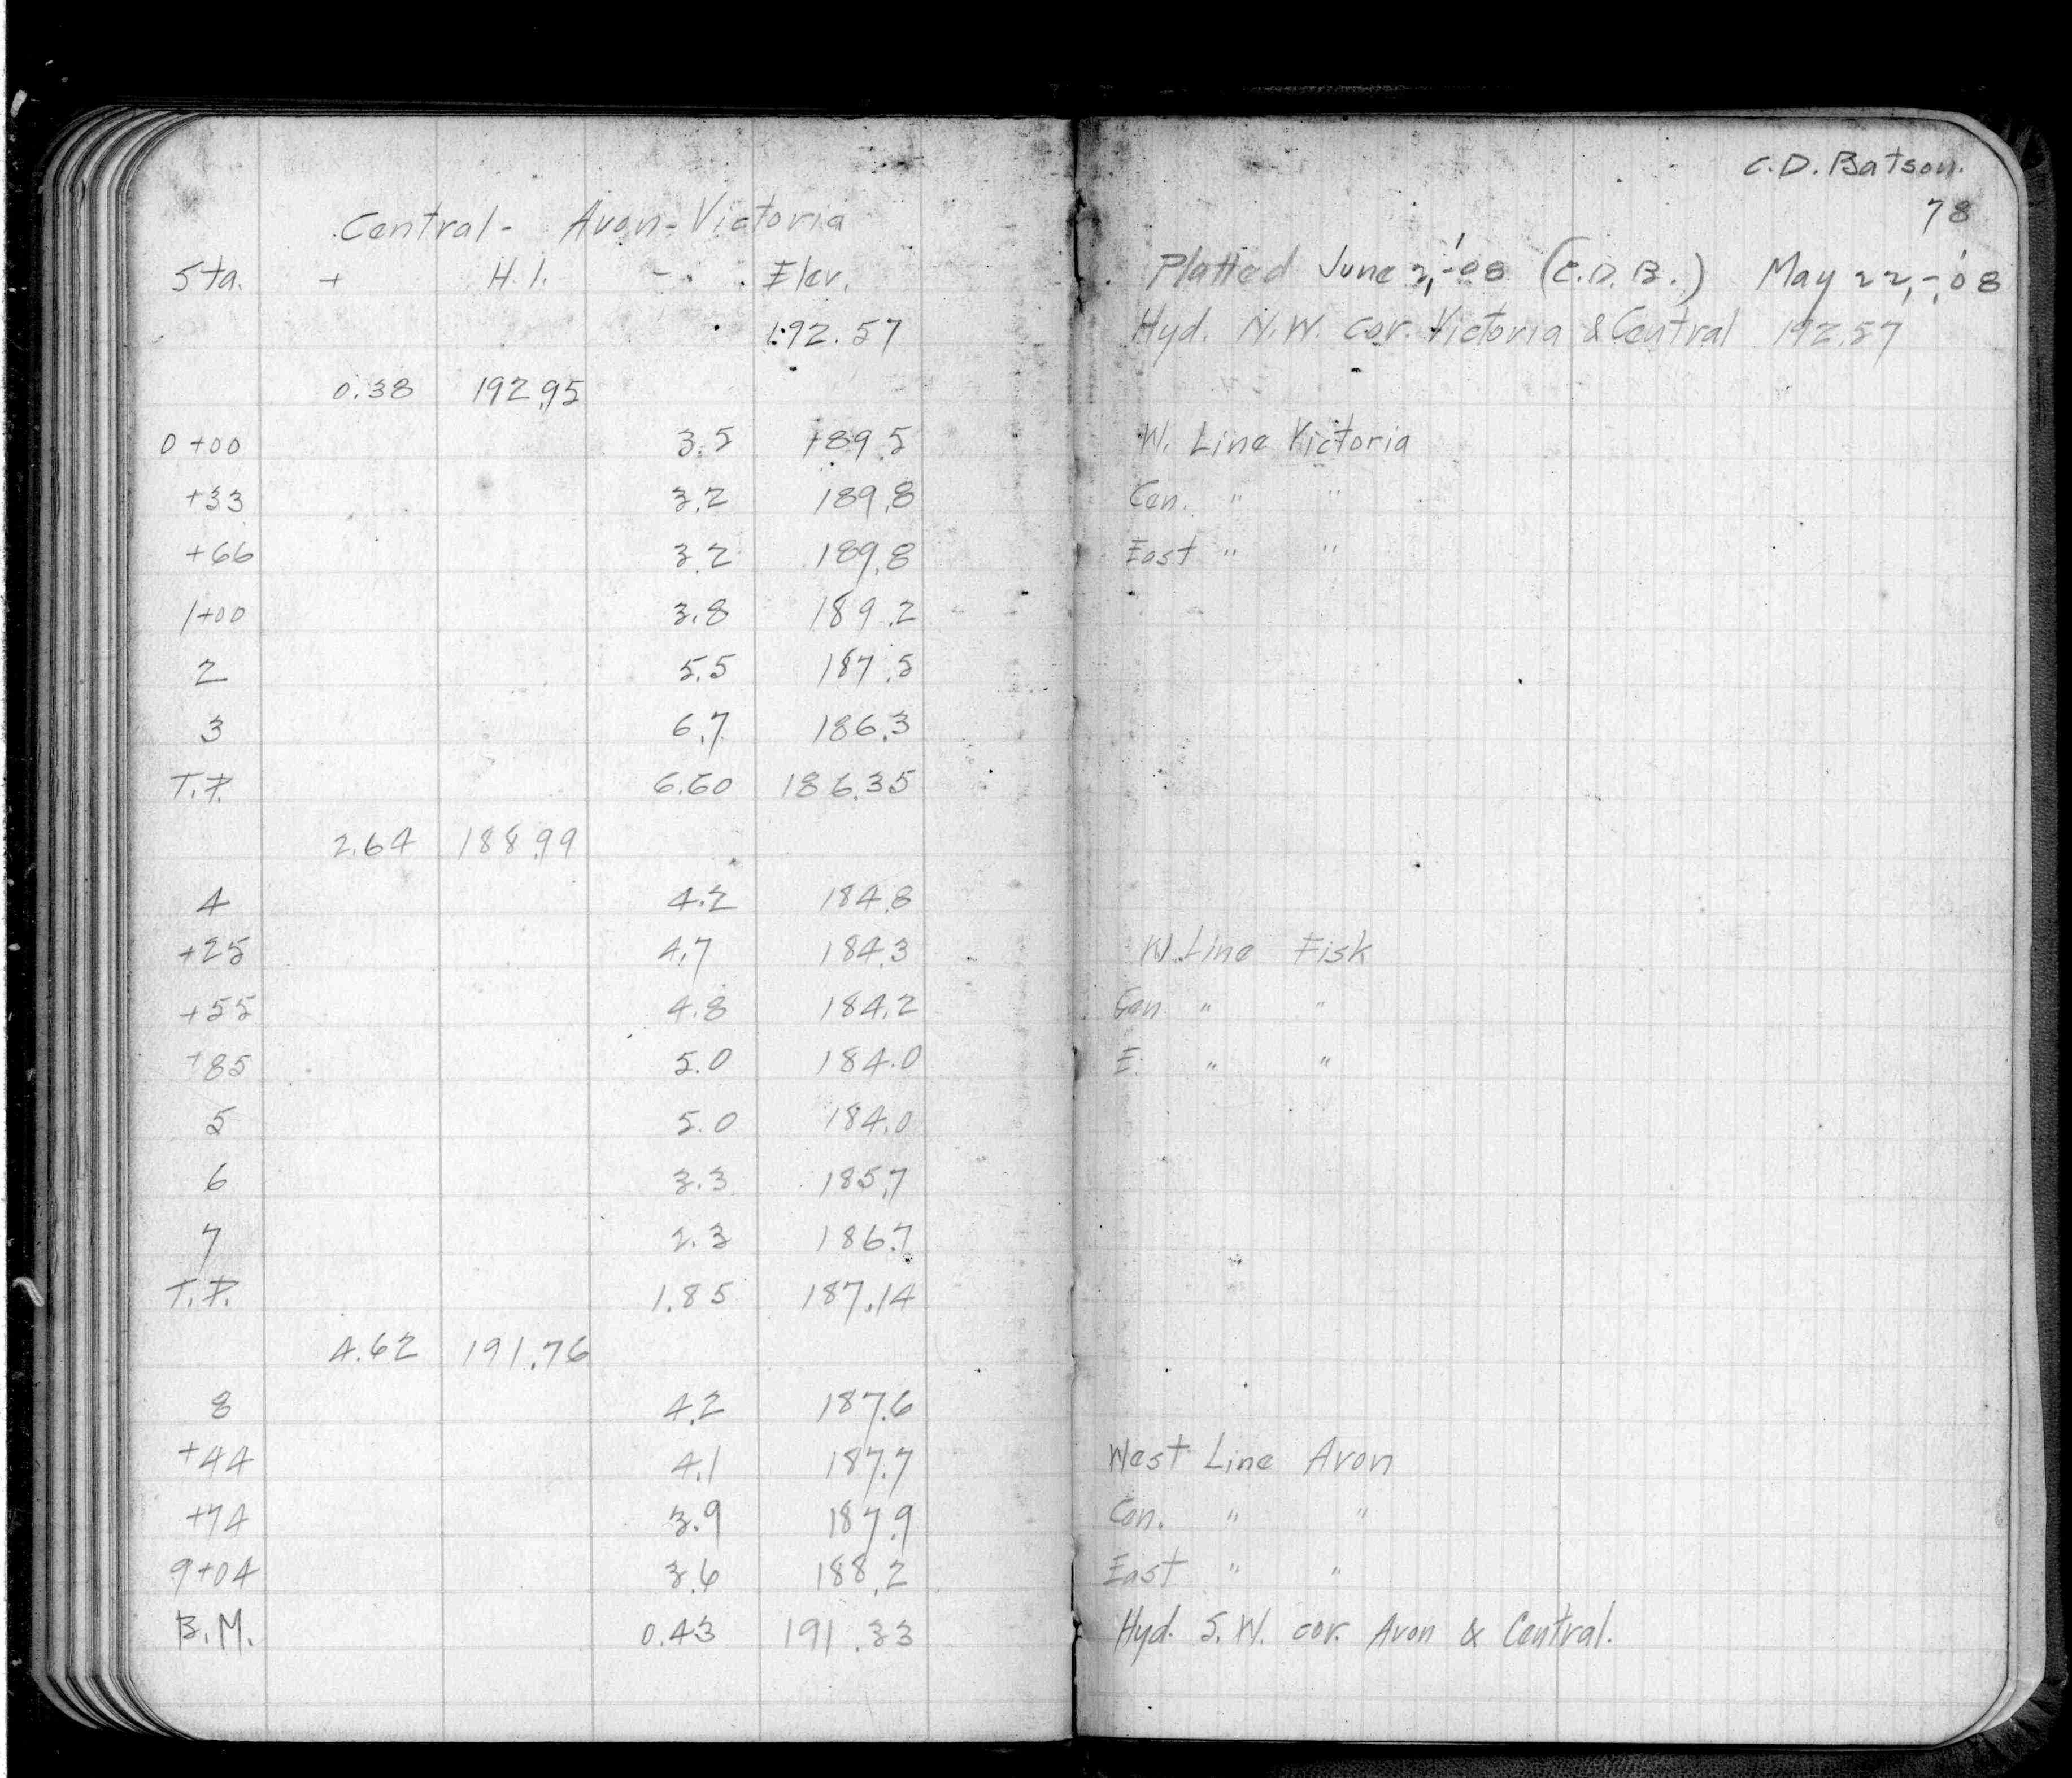 C.D. Batson.
78
Central - Avon-Victoria
Platted June 2,-'08 (C.D.B.) May 22,-'08
Sta. + H.I. - Elev.
192.57 Hyd. N.W. cor. Victoria & Central 192.57
0.38 192.95
0+00 3.5 189.5 W. Line Victoria
+33 3.2 189.8 Cen. " "
+66 3.2 189.8 East " "
1+00 3.8 189.2
2 5.5 187.5
3 6.7 186.3
T.P. 6.60 186.35
2.64 188.99
4 4.2 184.8
+25 4.7 184.3 W. Line Fisk
+55 4.8 184.2 Cen " "
+85 5.0 184.0 E. " "
5 5.0 184.0
6 3.3 185.7
7 2.3 186.7
T.P. 1.85 187.14
4.62 191.76
8 4.2 187.6
+44 4.1 187.7 West Line Avon
+74 3.9 187.9 Cen. " "
9+04 3.6 188.2 East " "
B.M. 0.43 191.33 Hyd. S.W. cor. Avon & Central.